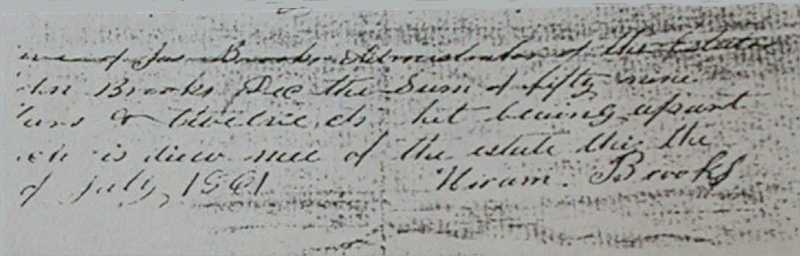 of Jas Brooks Administrator of the Estate
Brooks Dec the Sum of fifty nine
& twelve cts hit beaing apart
is diew mee of the estate this the
of July, 1861 Hiram. Brooks